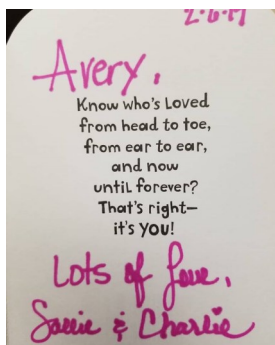 2-6-17
Avery,
Know who's Loved
from head to toe,
from ear to ear,
and now
until forever?
That's right—
it's YOU!
Lots of Love,
Sallie & Charlie